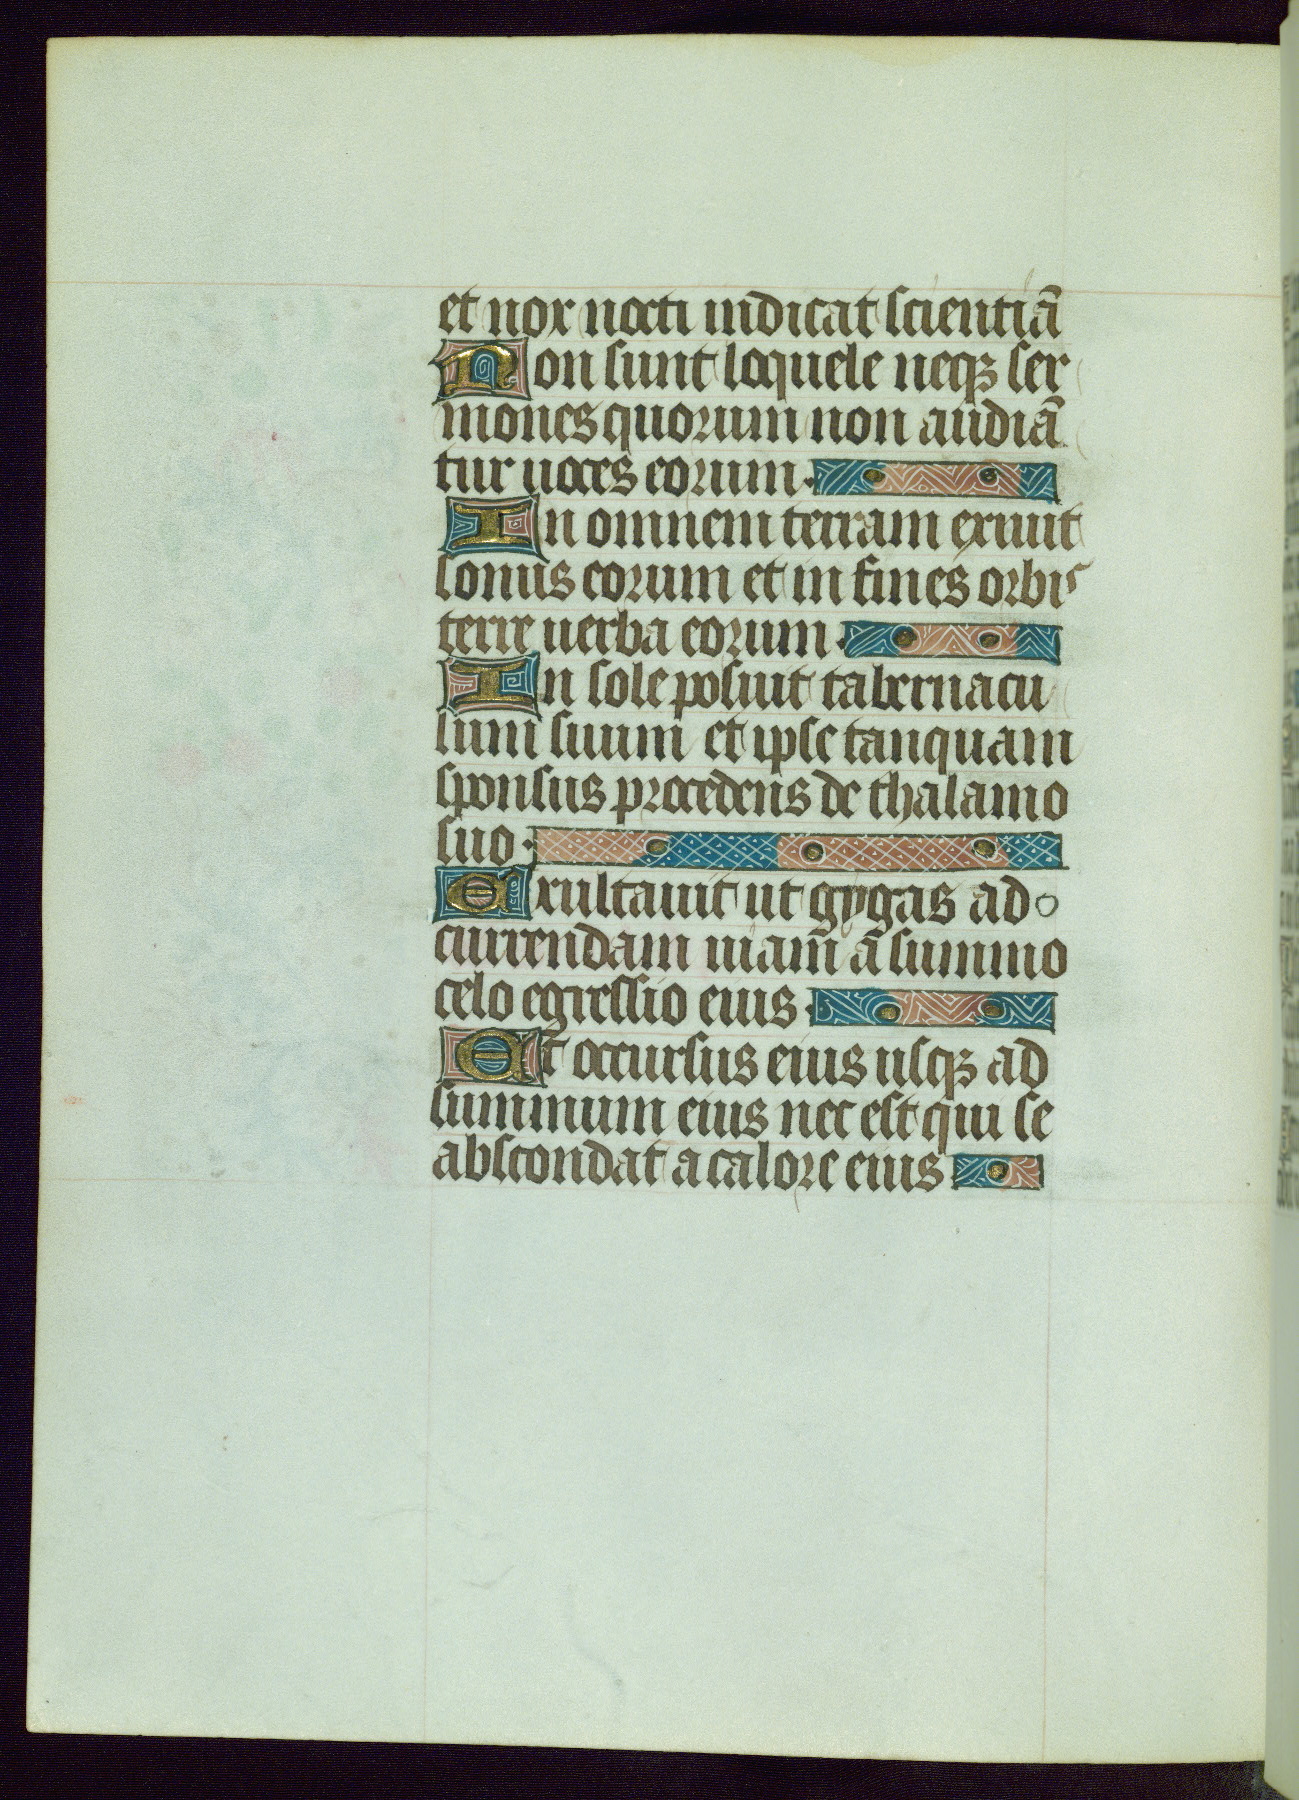 et nox nocti indicat scientiā
Non sunt loquele neqꝫ ser
mones quorum non audiā
tur uoces eorum·
In omnem terram exiuit
sonus eorum et in fines orbis
terre uerba eorum·
In sole posuit tabernacu
lum suum et ipse tanquam
sponsus procedens de thalamo
suo·
Exultauit ut gygas ad
currendam uiam̄ ā summo
celo egressio eius·
Et occursus eius usqꝫ ad
summum eius nec est qui se
abscondat a calore eius